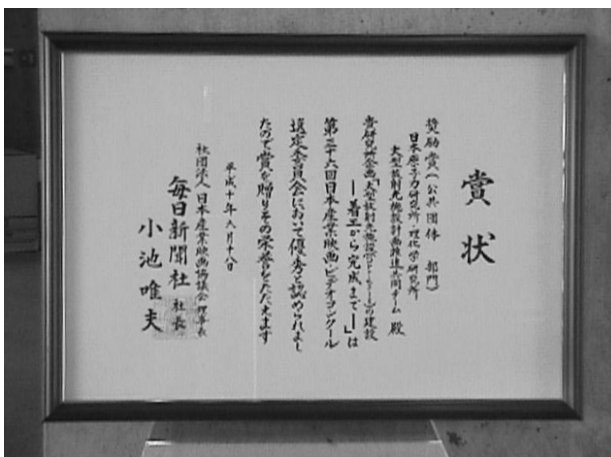 賞状
奨励賞(公共団体 部門)
日本原子力研究所・理化学研究所
大型放射光施設計画推進共同チーム 殿
貴研究所企画「大型放射光施設(SPring-8)の建設
―着工から完成まで―」は
第三十六回日本産業映画・ビデオコンクール
選定委員会において優秀と認められまし
たので賞を贈りその栄誉をたたえます
平成十年六月十八日
社団法人 日本産業映画協議会 理事長
毎日新聞社 社長
小池唯夫